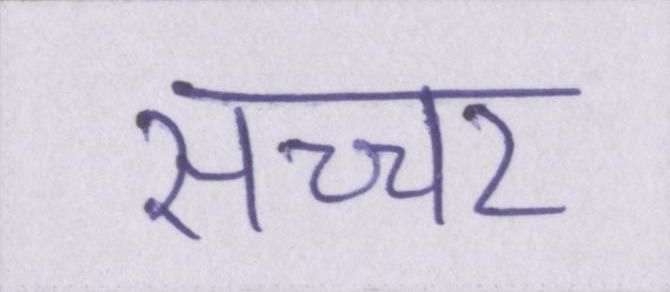 सच्चर